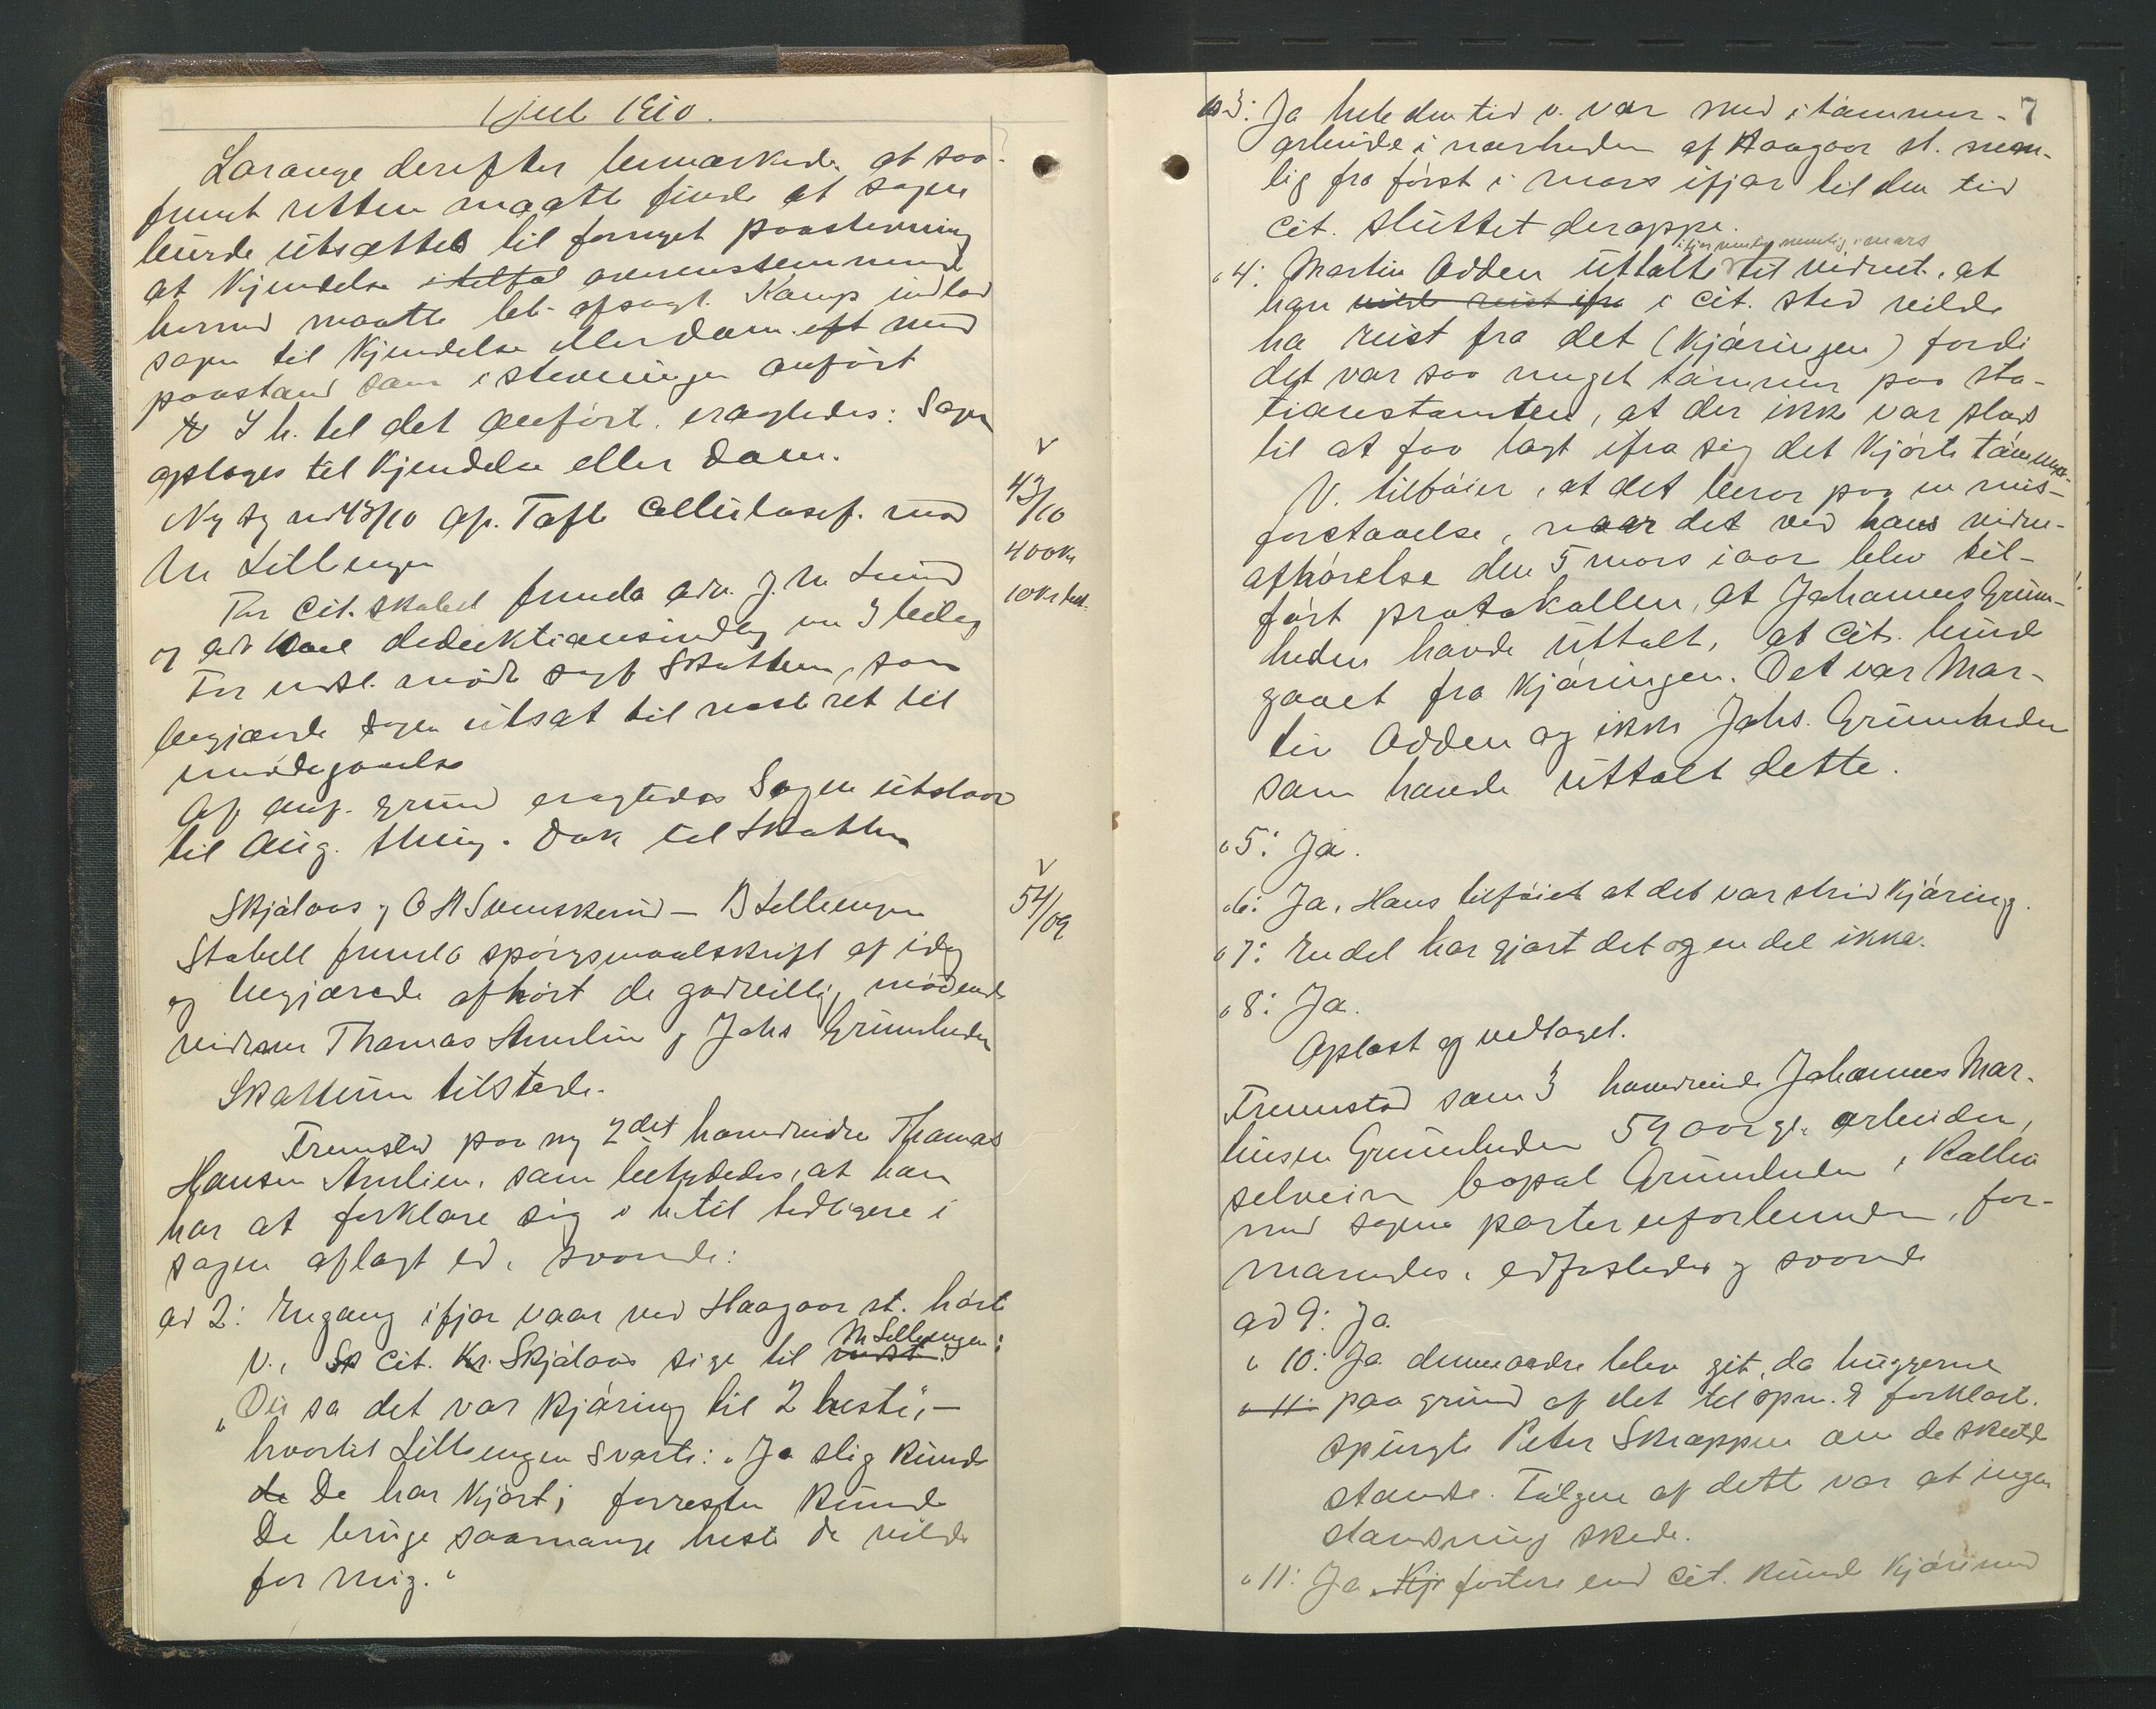 1 Juli 1910.
Lorange derefter bemærkede, at saa-
fremt retten maatte finde at sagen
burde utsættes til fornyet paastevning
at Kjendelse i tilfæl overensstemmende
hermed maatte bli afsagt. Kamp indlod
sagen til Kjendelse eller dom. eft med
paastand som i stevningen anført
I h. til det anført. eragtedes: Sagen
optages til Kjendelse eller Dom.
Ny sg no 43/10 Ap. Tofte Cellulosef. mod
M Lillengen
For Cit. Stabel fremla adv. J. M. Lund
og deduktionsindlæg m 3 bilag
For indst. mødte sagf Skattum, som
begjærede sagen utsat til næste ret til
imødegaaelse
Af anf. grund eragtedes Sagen utstaar
til Aug. thing. Dok til Skattum
Skjølaas & O A Svenskerud – M Lillengen
Stabell fremla spørgsmaalskrift af idag
og begjærede afhørt de godvillig mødende
vidner Thomas Amlien & Johs Grumheden
Skattum tilstede.
Fremstod paa ny 2det hovedvidne Thomas
Hansen Amlien, som betydedes, at han
har at forklare sig i h. til tidligere i
sagen aflagt ed, svarede:
ad 2: Engang ifjor vaar ved Haagaar st. hørte
V., Sk Cit. Kr. Skjølaas sige til indst. M Lillengen:
"Du sa det var kjøring til 2 heste", –
hvortil Lillengen svarte: "Ja slig kunde
de De har kjørt; forresten kunde
De bruge saamange heste De vilde
for mig."
V
43/10
400 Kr
10 Kr bet.
V
54/09
7
" 3: Ja hele den tid v. var med i tømmer-
arbeide i nærheden af Haagaar st. nem-
lig fra først i mars ifjor til den tid
Cit. sluttet deroppe.
ifjor nemlig i mars
" 4: Martin Odden uttalte til vidnet, at
han vilde reist ifra i Cit. sted vilde
ha reist fra det (Kjøringen) fordi
det var saa meget tømmer paa sta-
tionstomten, at der ikke var plads
til at faa lagt ifra sig det kjørte tømmer.
V. tilføier, at det beror paa en mis-
forstaaelse, naar det ved hans vidne-
afhørelse den 5 mars iaar blev til-
ført protokollen, at Johannes Grum-
heden havde uttalt, at Cit. burde
gaaet fra Kjøringen. Det var Mar-
tin Odden og ikke Johs. Grumheden
som havde uttalt dette.
" 5: Ja.
" 6: Ja. Hans tilføiet at det var strid kjøring.
" 7: En del har gjort det og en del ikke.
" 8: Ja.
Oplæst og vedtaget.
Fremstod som 3 hovedvidne Johannes Mar-
tinsen Grumheden 59 aar g. arbeider,
selveier bopæl Grumheden i Kolbu
med sagens parter uforbunden, for-
manedes, edfæstedes og svarede
ad 9: Ja
" 10: Ja. denne ordre blev git, da huggerne
" 11: paa grund af det til spm. 9 forklart.
spurgte Peter Skrappen om de skulde
standse. Følgen af dette var at ingen
standsning skede.
" 11: Ja. Kjr fortere end Cit. kunde kjøre med